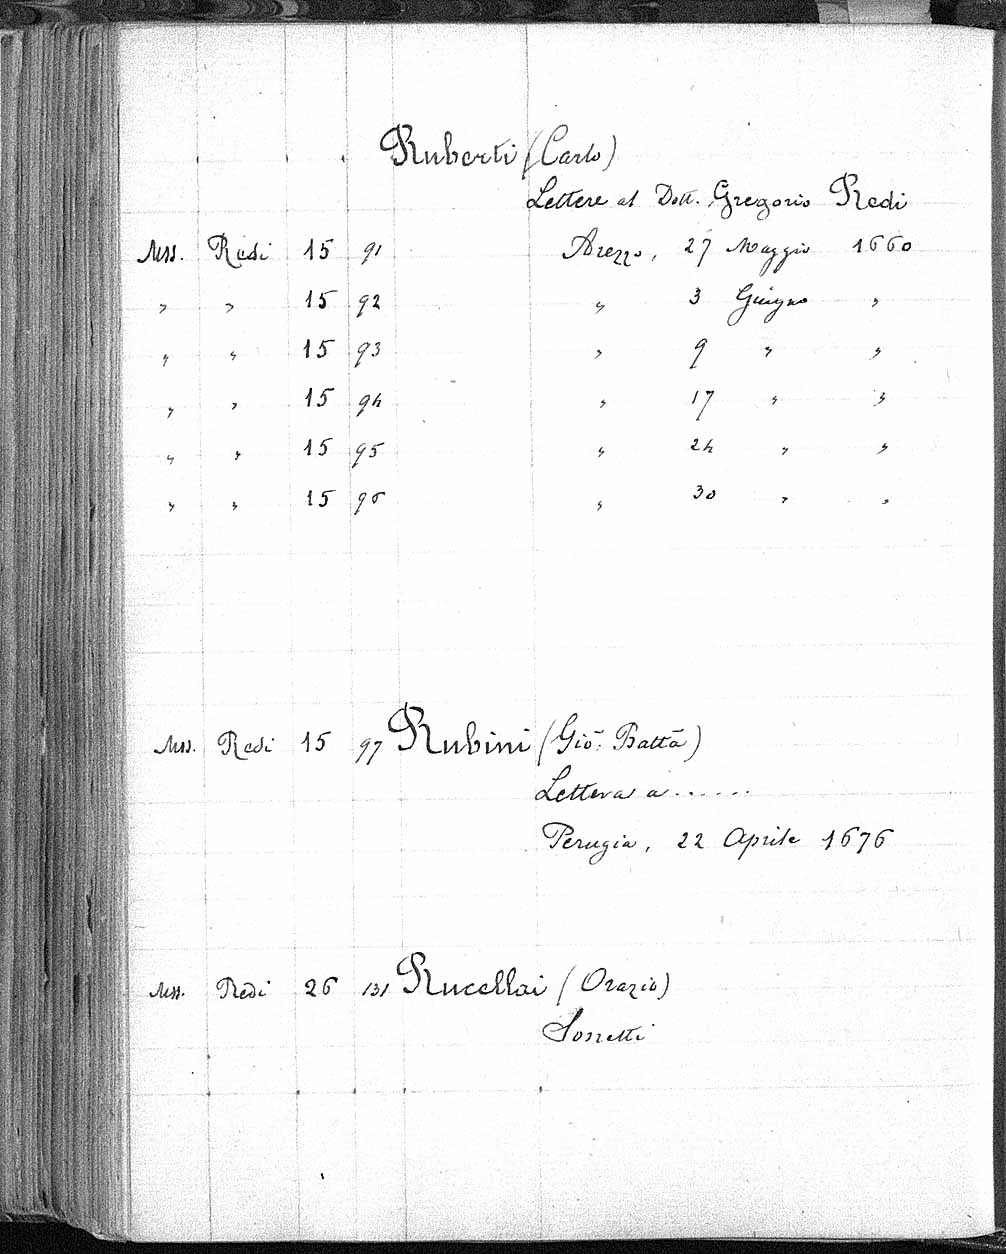 Ruberti (Carlo)
Lettere al Dott. Gregorio Redi
Mss. Redi 15 91 Arezzo, 27 Maggio 1660
" " 15 92 " 3 Giugno "
" " 15 93 " 9 " "
" " 15 94 " 17 " "
" " 15 95 " 24 " "
" " 15 96 " 30 " "
Mss. Redi 15 97 Rubini (Gio: Battā)
Lettera a ......
Perugia, 22 Aprile 1676
Mss. Redi 26 131 Rucellai (Orazio)
Sonetti